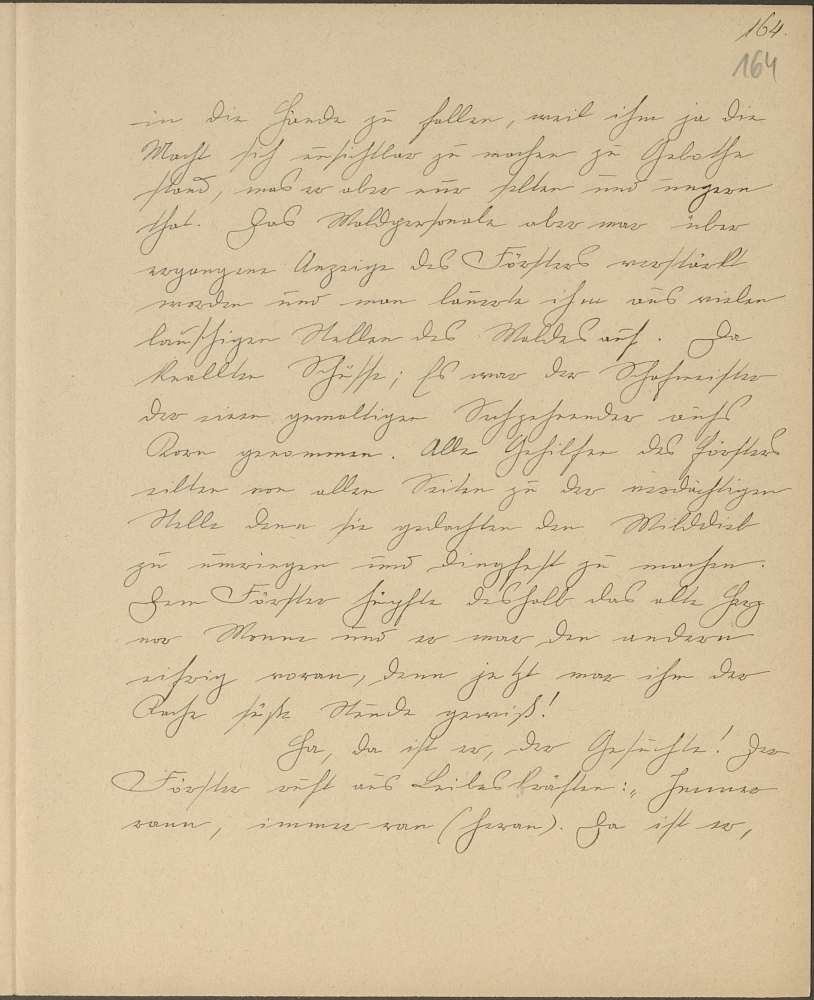 164.
164
in die Hände zu fallen, weil ihm ja die
Macht sich unsichtbar zu machen zu Gebothe
stand, was er aber nur selten und ungern
that. Das Waldpersonale aber war über
ergangene Anzeige des Försters verstärkt
worden und man lauerte ihm aus vielen
lauschigen Stellen des Waldes auf. Da
knallten Schüsse; Es war der Schafmeister
der einen gewaltigen Sechzehnender aufs
Korn genommen. Alle Gehilfen des Försters
eilten von allen Seiten zu der verdächtigen
Stelle denn sie gedachten den Wilddieb
zu umringen und dingfest zu machen.
Dem Förster hüpfte deshalb das alte Herz
vor Wonne und er war den andern
eifrig voran, denn jetzt war ihm der
Rache süße Stunde gewiß!
Ha, da ist er, der Gesuchte! Der
Förster ruft aus Leibeskräften: „
rann, immer ran (heran). Da ist er,